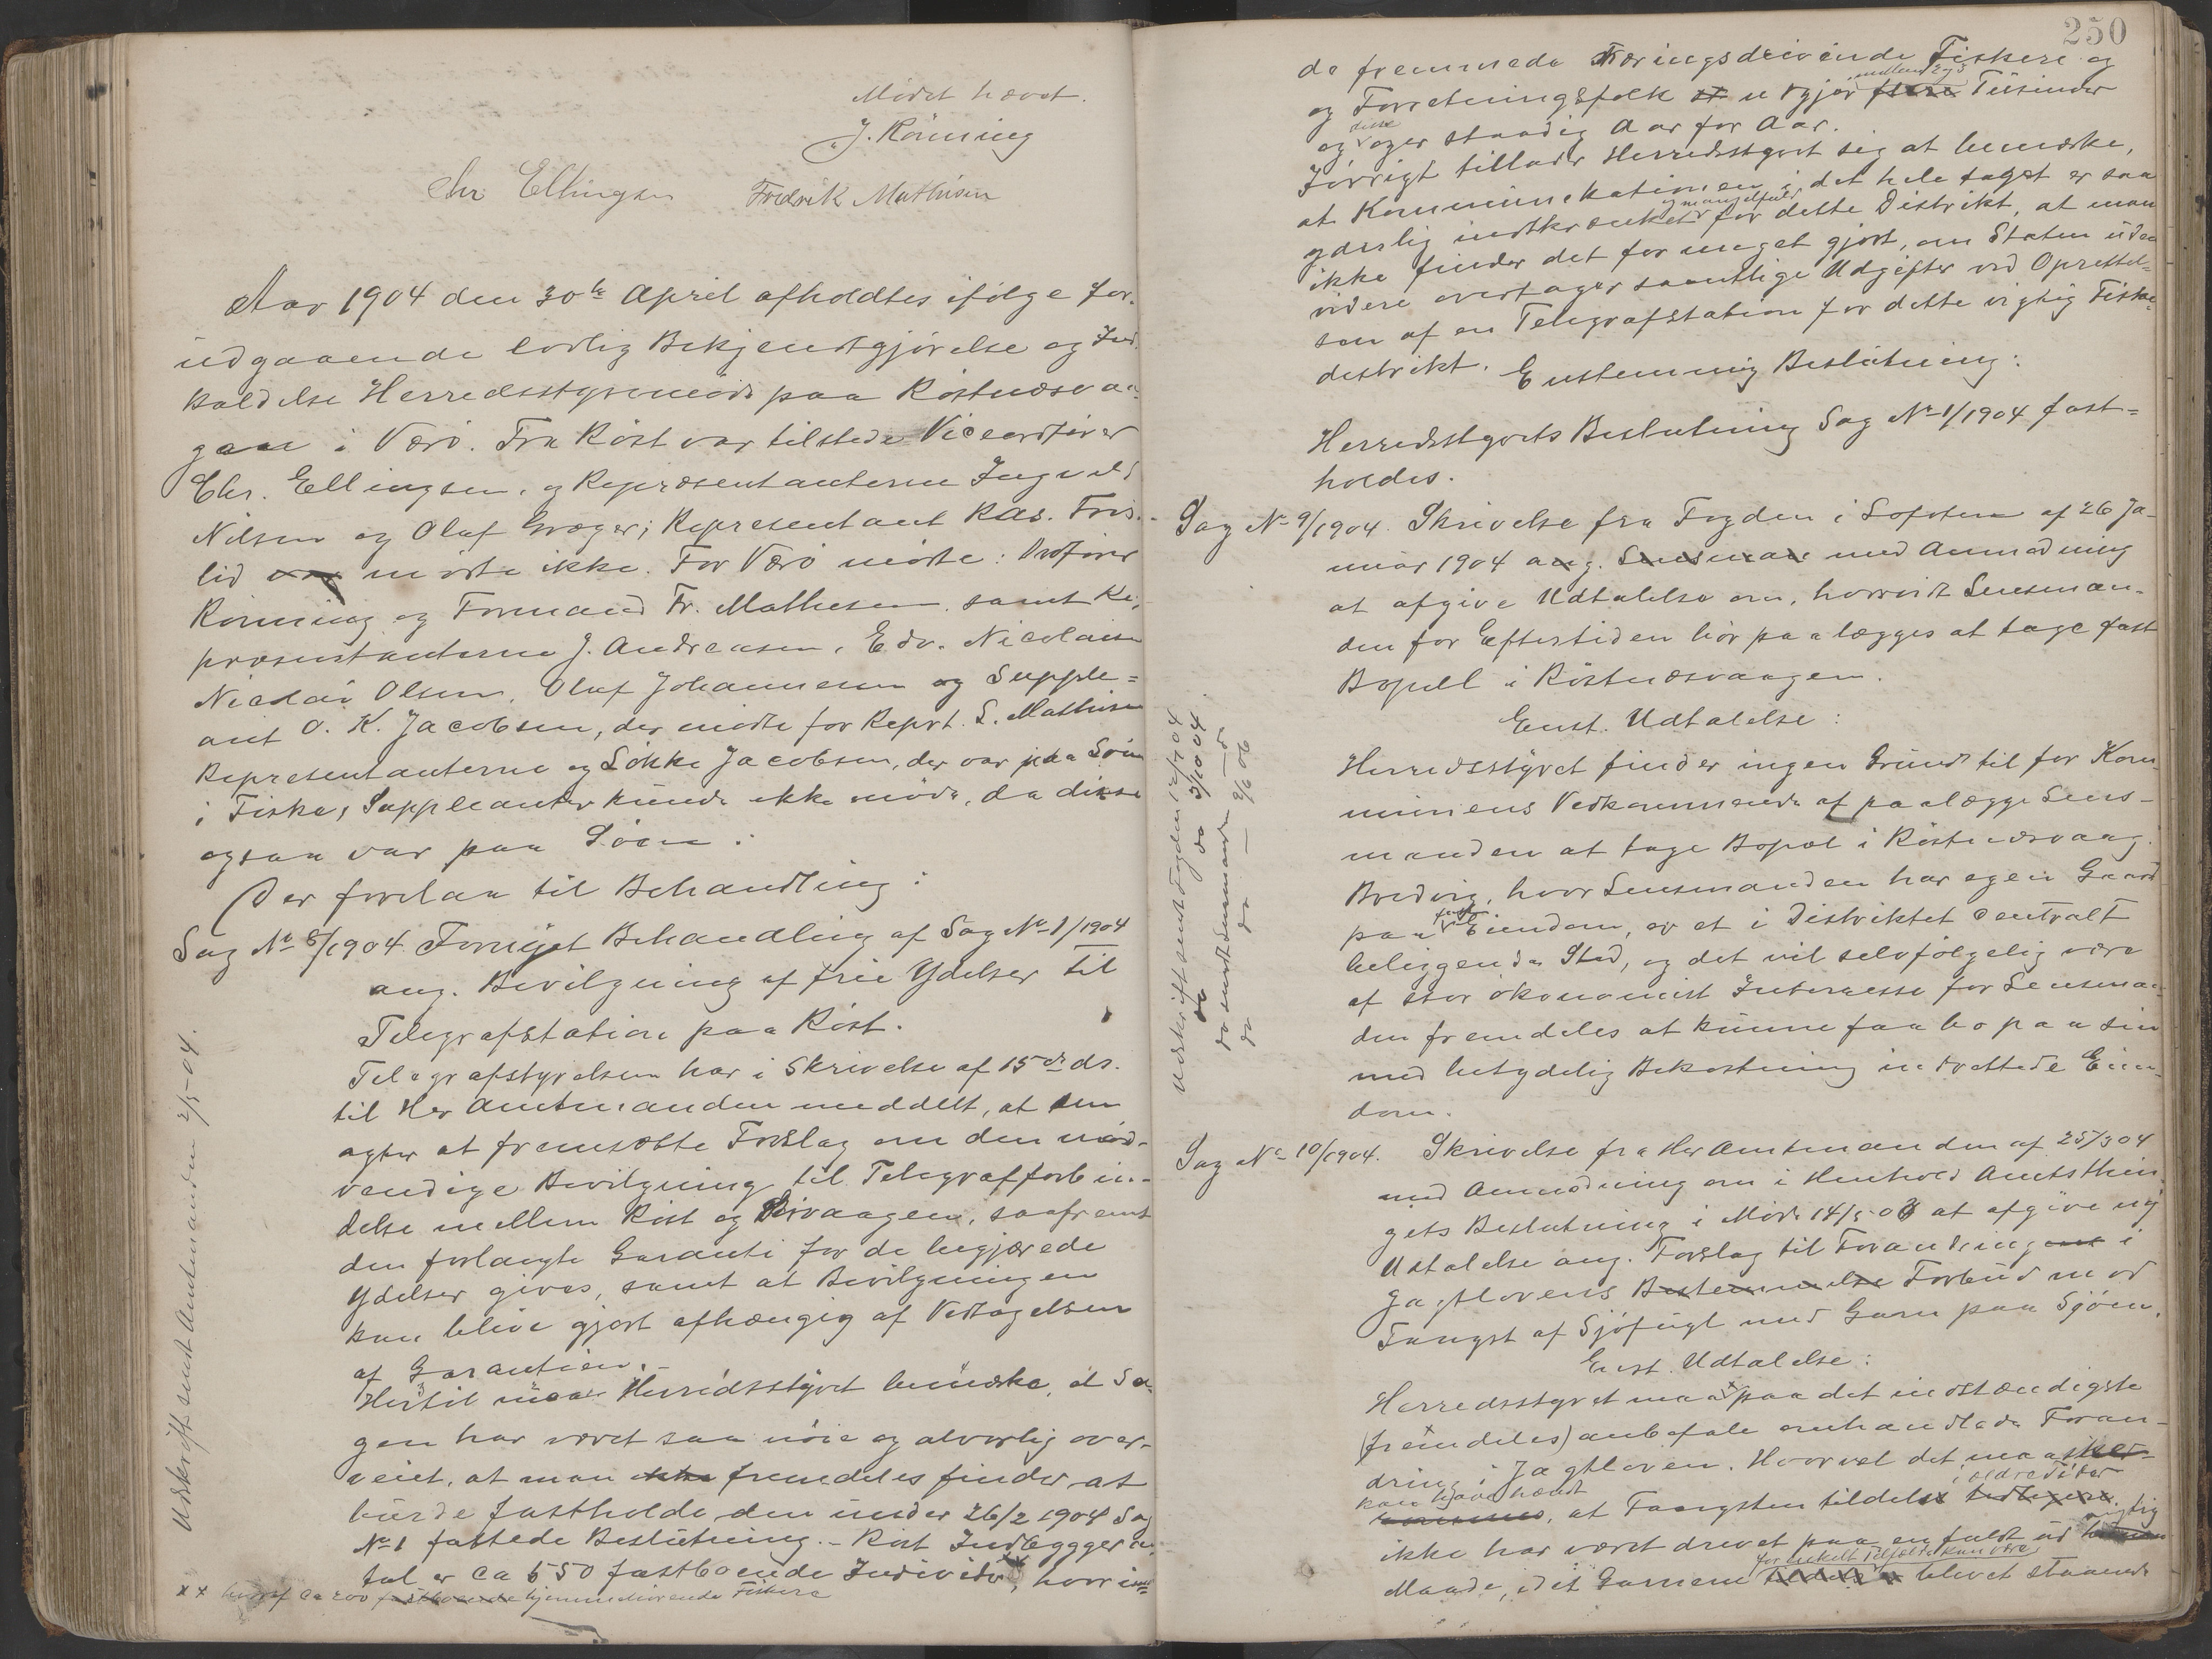 Mödet hævet.
J. Rönning
Chr Ellingsen Fredrik Mathisen
Aar 1904 den 30te April afholdtes ifölge for-
udgaaende lovlig Bekjendtgjörelse og Ind-
kaldelse Herredsstyremöde paa Röstnæsvaa-
gen i Værö. Fra Röst var tilstede Viceordförer
Chr. Ellingsen, og Repræsentanterne Ingvald
Nilsen og Olaf Greger; Repræsentant Ras.
lid var mödte ikke. For Værö mödte: Ordförer
Rönning og Formand Fr. Mathisen samt Re-
præsentanterne J. Andreasen, Edv. Nicolaisen
Nicolai Olsen, Oluf Johannesen og Supple-
ant O. K. Jacobsen, der mödte for Reprt. S. Mathisen
Repræsentanterne og Sökke Jacobsen, der var paa Söen
i Fiske, Suppleanter kunde ikke möde, da disse
ogsaa var paa Söen.
Der forelaa til Behandling:
Sag No 8/1904. Fornyet Behandling af Sag No 1/1904
ang. Bevilgning af frie Ydelser til
Telegrafstation paa Röst.
Telegrafstyrelsen har i Skrivelse af 15de ds.
til Hr Amtmanden meddelt, at den
agter at fremsætte Forslag om den nöd-
vendige Bevilgning til Telegrafforbin-
delse mellem Röst og Sörvaagen, saafremt
den forlangte Garanti for de begjærede
Ydelser gives, samt at Bevilgningen
kan blive gjort afhængig af Vedtagelsen
af Garantien.
Hertil maa Herredsstyret bemærke, at Sa-
gen har været saa nöie og alvorlig over-
veiet, at man ikke fremdeles finder at
burde fastholde den under 26/2 1904 Sag
No 1 fattede Beslutning. - Röst Indbyggeran-
tal er ca 550 fastboende Individer xx, hvorimod
xx hvoraf ca 200 fastboende hjemmehörende Fiskere
Udskrift sendt Amtmanden 2/5-04.
250
de fremmede Næringsdrivende Fiskere og
og Forretningsfolk er udgjör flere endeel Tusinder
og disse öger stadig Aar for Aar.
Forövrigt tillader Herredsstyret sig at bemærke,
at Kommunikationen i det hele taget er saa
yderlig indskrænket og mangelfuld for dette Distrikt, at man
ikke finder det for meget gjort, om Staten uden
videre overtager samtlige Udgifter ved Oprettel-
sen af en Telegrafstation for dette vigtig Fiske-
distrikt. Enstemmig Beslutning:
Herredsstyrets Beslutning Sag No 1/1904 fast-
holdes.
Sag No 9/1904. Skrivelse fra Fogden i Lofoten af 26 Ja-
nuar 1904 ang. Lensman med Anmodning
at afgive Udtalelse om, hvorvidt Lensman-
den for Eftertiden bör paalægges at tage fast
Bopæl i Röstnæsvaagen.
Enst. Udtalelse:
Herredsstyret finder ingen Grund til for Kom-
munens Vedkommende at paalægge Lens-
manden at tage Bopæl i Röstnæsvaag.
Bredvig, hvor Lensmanden har egen Gaard
paa fast Eiendom, er et i Distriktet centralt
beliggende Sted, og det vil selvfölgelig være
af stor ökonomisk Interesse for Lensman-
den fremdeles at kunne faa bo paa sin
med betydelig Bekostning indrettede Eien-
dom.
Udskrift sendt Fogden 12/7 04
do do 3/10 04
do sendt Lensmanden 2/6 06
do do
Sag No 10/1904. Skrivelse fra Hr Amtmanden af 25/3 04
med Anmodning om i Henhold Amtsthin-
gets Beslutning i Möde 14/5-03 at afgive ny
Udtalelse ang. Forslag til Forandring i
Jagtlovens Bestemmelse Forbud mod
Fangst af Sjöfugl med Garn paa Sjöen.
Enst. Udtalelse:
Herredsstyret maa x paa det indstændigste
(x fremdeles) anbefale omhandlede Foran-
dring i Jagtloven. Hvorvel det maaskee
kan have hændt, at Fangsten tildels i ældre Tider tidligere
ikke har været drevet paa en fuldt ud rigtig
Maade, idet Garnene for enkelt Tilfælde kan være blevet staaende